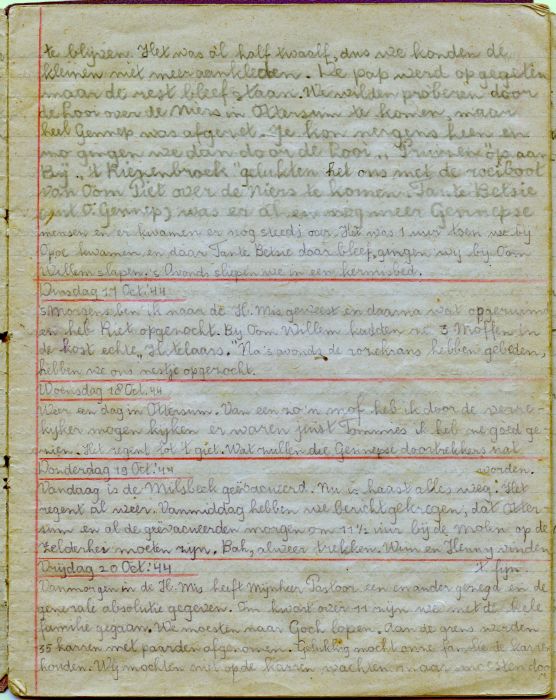 te blijven. Het was al half twaalf, dus we konden de
kleinen niet meer aankleden. De pap werd opgegeten
maar de rest bleef staan. We wilden proberen door
de hooi over de Niers in Ottersum te komen, maar
heel Gennep was afgezet. Je kon nergens heen en
zo gingen we dan door de hooi „ Pruisen" op aan
Bij „'t Riezenbroek" gelukten het ons met de roeiboot
van Oom Piet over de Niers te komen. Tante Betsie
(uit O. Gennep) was er al en nog meer Gennepse
mensen en er kwamen er nog steeds over. Het was 1 uur toen we bij
Opoe kwamen en daar Tante Betsie daar bleef, gingen wij bij Oom
Willem slapen. 's Avonds sliepen we in een kermisbed.
Dinsdag 17 Oct.'44
's Morgens ben ik naar de H. Mis geweest en daarna wat opgeruimd
en heb Riet opgezocht. Bij Oom Willem hadden ze 3 Moffen in
de kost echte „ Hitelaars." Na 's avonds de rozekrans hebben gebeden,
hebben we ons nestje opgezocht.
Woensdag 18 Oct.'44
Weer een dag in Ottersum. Van een zo'n mof heb ik door de verre-
kijker mogen kijken er waren juist Tommies ik heb ze goed ge-
zien. Het regent tot 't giet. Wat zullen die Gennepse doortrekkers nat
worden.
Donderdag 19 Oct.'44
Vandaag is de Milsbeek geëvacueerd. Nu is haast alles weg. Het
regent al weer. Vanmiddag hebben we bericht gekregen, dat Otter-
sum en al de geëvacueerden morgen om 11½ uur bij de Molen op de
Zelderhei moeten zijn. Bah, alweer trekken. Wim en Henny vinden
't fijn.
Vrijdag 20 Oct.'44
Vanmorgen in de H. Mis heeft Mijnheer Pastoor een en ander gezegd en de
generale absolutie gegeven. Om kwart over 11 zijn we met de hele
familie gegaan. We moesten naar Goch lopen. Aan de grens werden
35 karren met paarden afgenomen. Gelukkig mocht onze familie de karren
houden. Wij mochten niet op de karren wachten maar moesten door